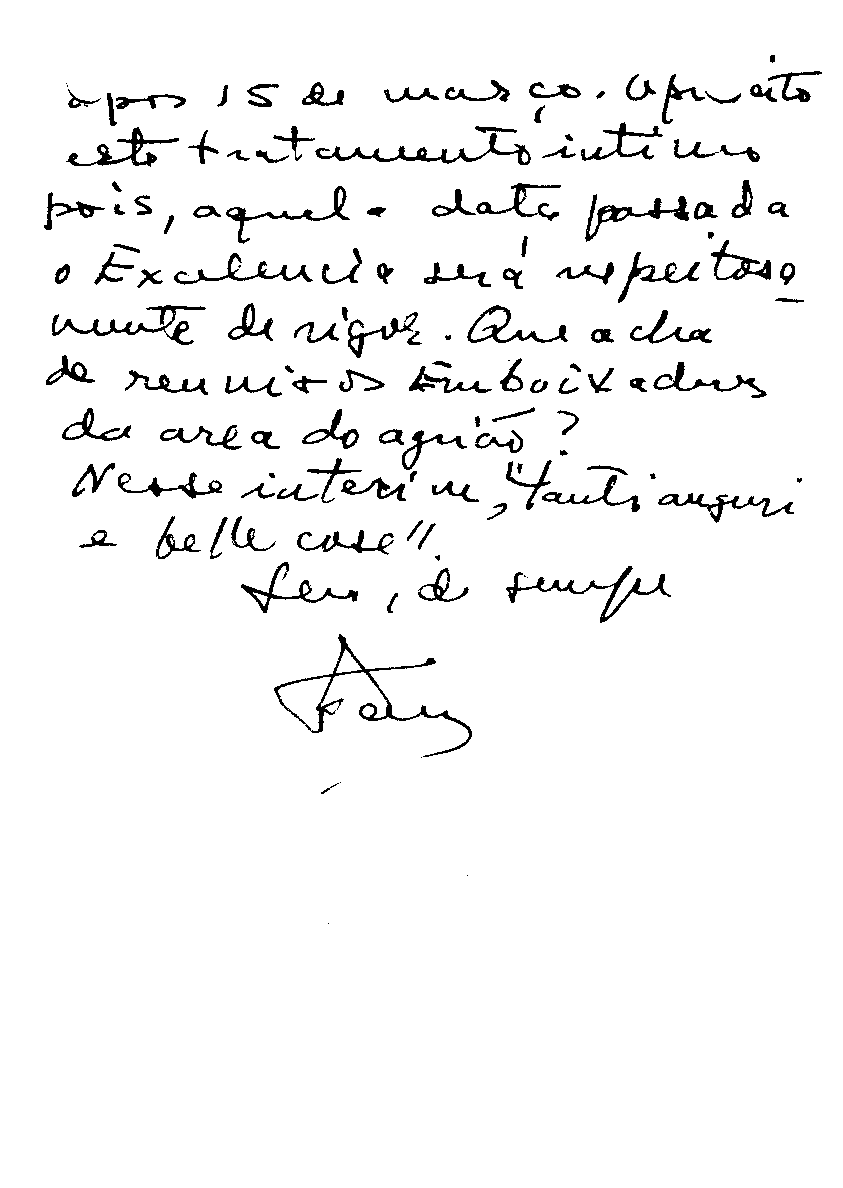 após 15 de março. Aproveito
este tratamento intimo
pois, aquela data passada
o Excelencia será respeitosa
mente de rigor. Que acha
de reunir os Embaixadores
da area do agrião?
Nesse interim, "tanti auguri
e belle cose".
Seu, de sempre